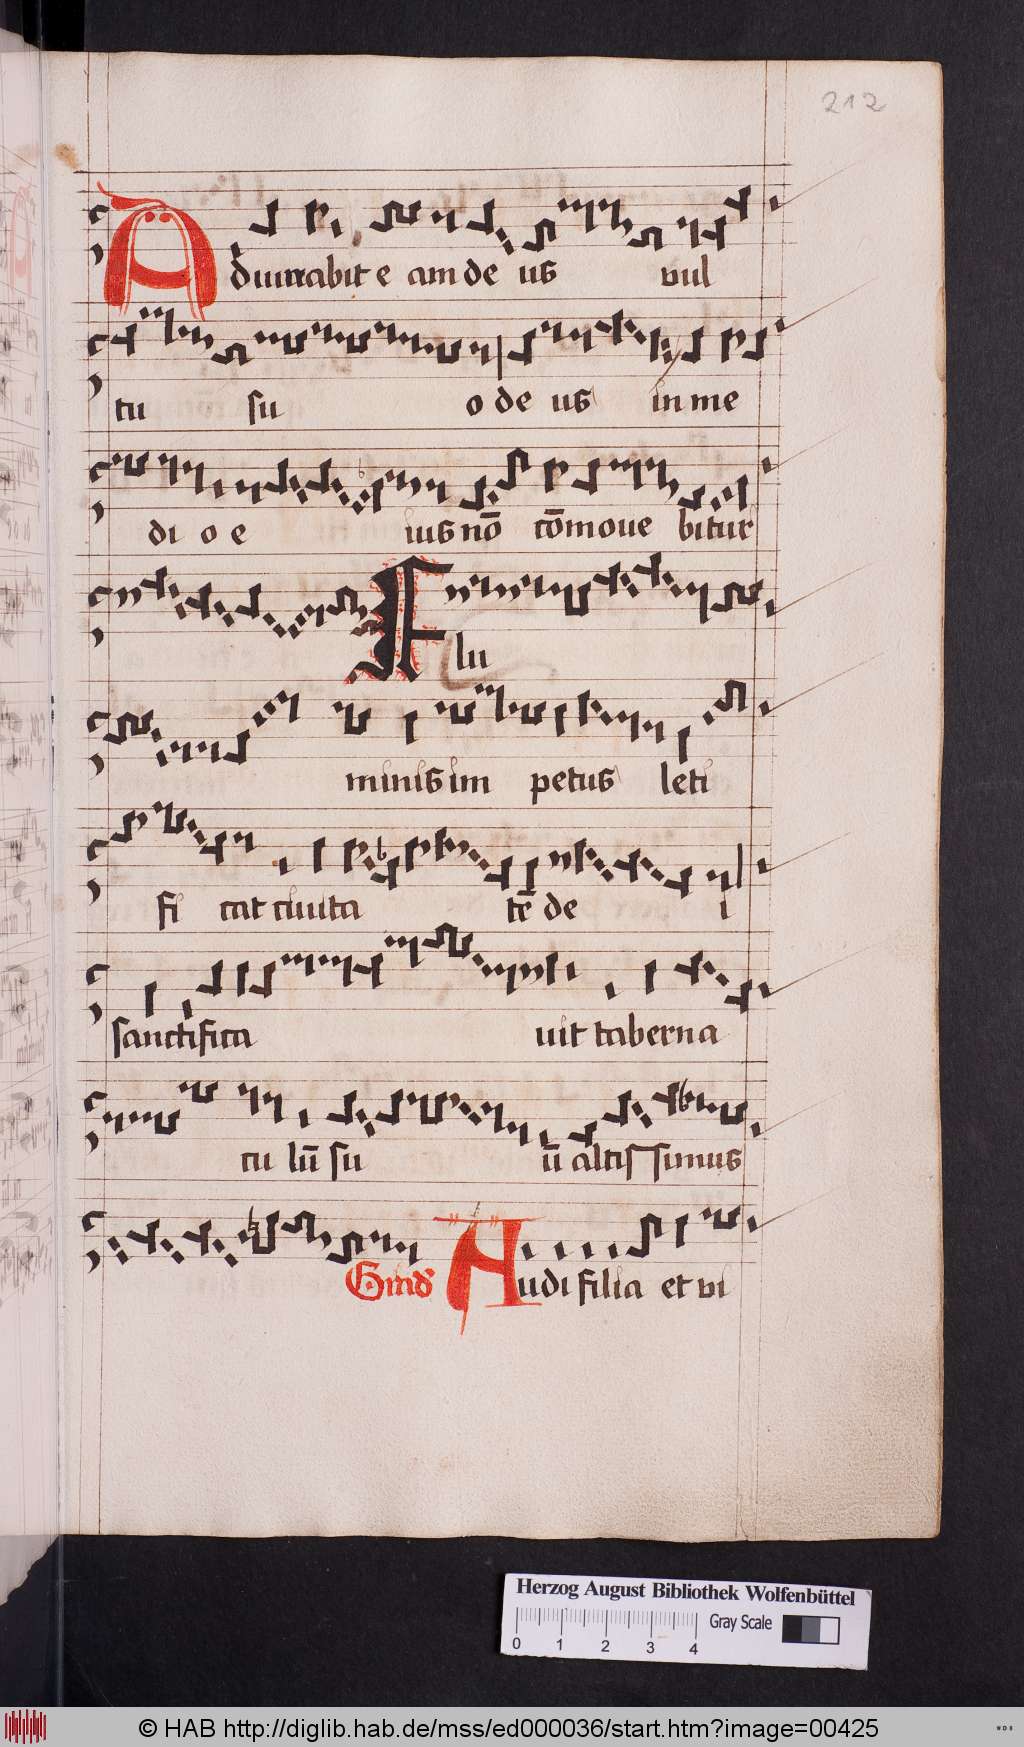 212
Adiuuabit e am de us vul
tu su o de us in me
di o e ius nō cōmoue bitur
Flu
minis im petus leti
fi cat ciuita tē de i
sanctifica uit taberna
cu lū su ū altissimus
Grad' Audi filia et vi
Herzog August Bibliothek Wolfenbüttel
0 1 2 3 4 Gray Scale
© HAB http://diglib.hab.de/mss/ed000036/start.htm?image=00425